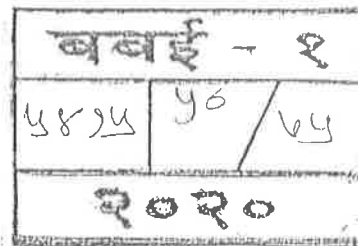 बबई - १
५४२५ ५० / ७५
२०२०